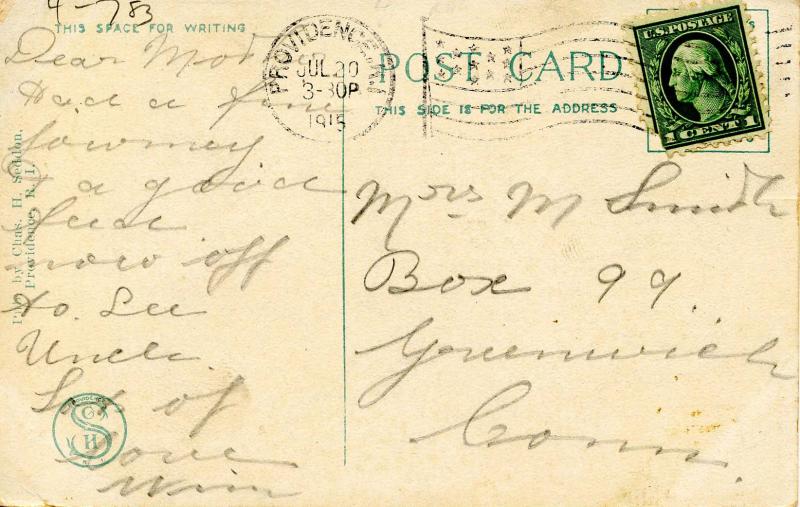 4-783
THIS SPACE FOR WRITING
Dear Mother
Had a fine
Journey
& a good
Feed
now off
to See
Uncle
Lots of
Love
Wim
Pub. by Chas. H. Seddon,
Providence, R. I.
PROVIDENCE, R.I.
JUL 20
3-30P
1915
POST CARD
THIS SIDE IS FOR THE ADDRESS
U.S. POSTAGE
1 CENT 1
Mrs M Smith
Box 99.
Greenwich
Conn.